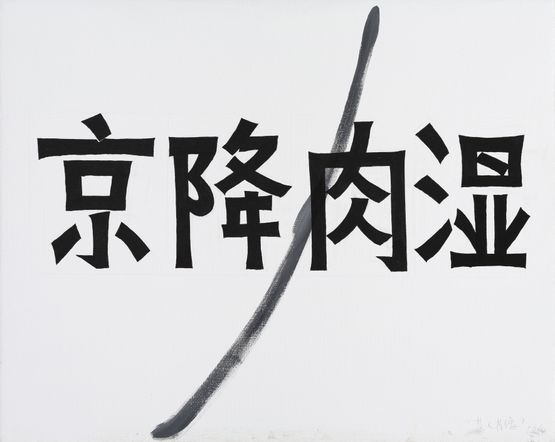 京降肉湿